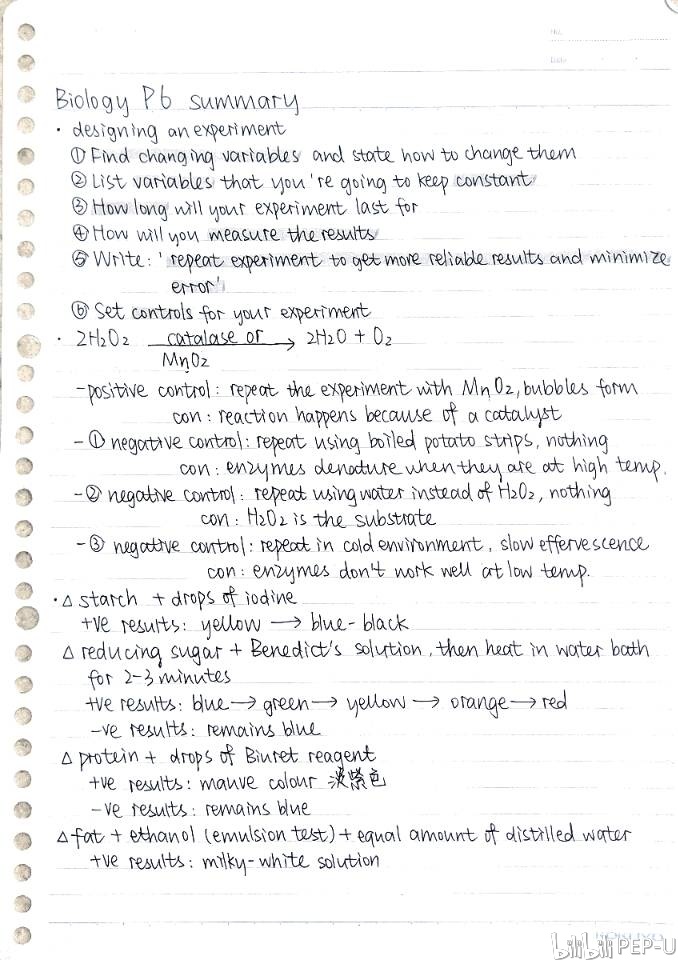 No.
Date
Biology P6 summary
· designing an experiment
① Find changing variables and state how to change them
② List variables that you're going to keep constant
③ How long will your experiment last for
④ How will you measure the results
⑤ Write: 'repeat experiment to get more reliable results and minimize
error'
⑥ Set controls for your experiment
· 2H₂O₂ catalase or → 2H₂O + O₂
MnO₂
- positive control: repeat the experiment with MnO₂, bubbles form
con: reaction happens because of a catalyst
- ① negative control: repeat using boiled potato strips, nothing
con: enzymes denature when they are at high temp.
- ② negative control: repeat using water instead of H₂O₂, nothing
con: H₂O₂ is the substrate
- ③ negative control: repeat in cold environment, slow effervescence
con: enzymes don't work well at low temp.
· △ starch + drops of iodine
+ve results: yellow → blue-black
△ reducing sugar + Benedict's solution, then heat in water bath
for 2-3 minutes
+ve results: blue → green → yellow → orange → red
-ve results: remains blue
△ protein + drops of Biuret reagent
+ve results: mauve colour 淡紫色
-ve results: remains blue
△ fat + ethanol (emulsion test) + equal amount of distilled water
+ve results: milky-white solution
bilibili PEP-U